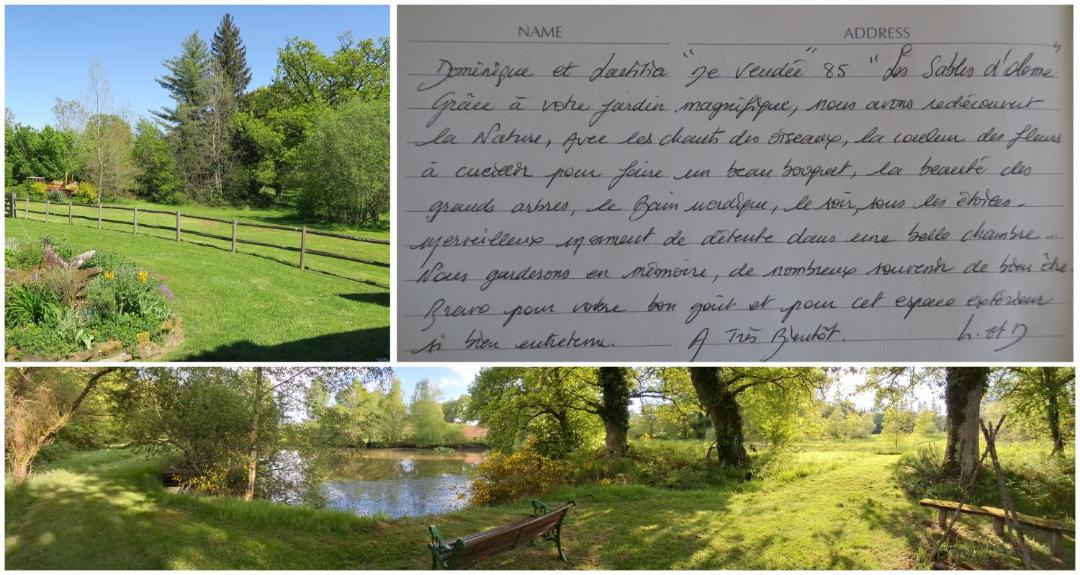 NAME ADDRESS
Dominique et Laetitia "De Vendée" 85 "Les Sables d'olonne"
Grâce à votre jardin magnifique, nous avons redécouvert
la Nature, Avec les chants des oiseaux, la couleur des fleurs
à cueillir pour faire un beau bouquet, la beauté des
grands arbres, le Bain nordique, le soir, sous les étoiles.
Merveilleux moment de détente dans une belle chambre...
Nous garderons en mémoire, de nombreux souvenir de bien être.
Bravo pour votre bon goût et pour cet espace extérieur
si bien entretenu. A Très Bientôt. L. et D